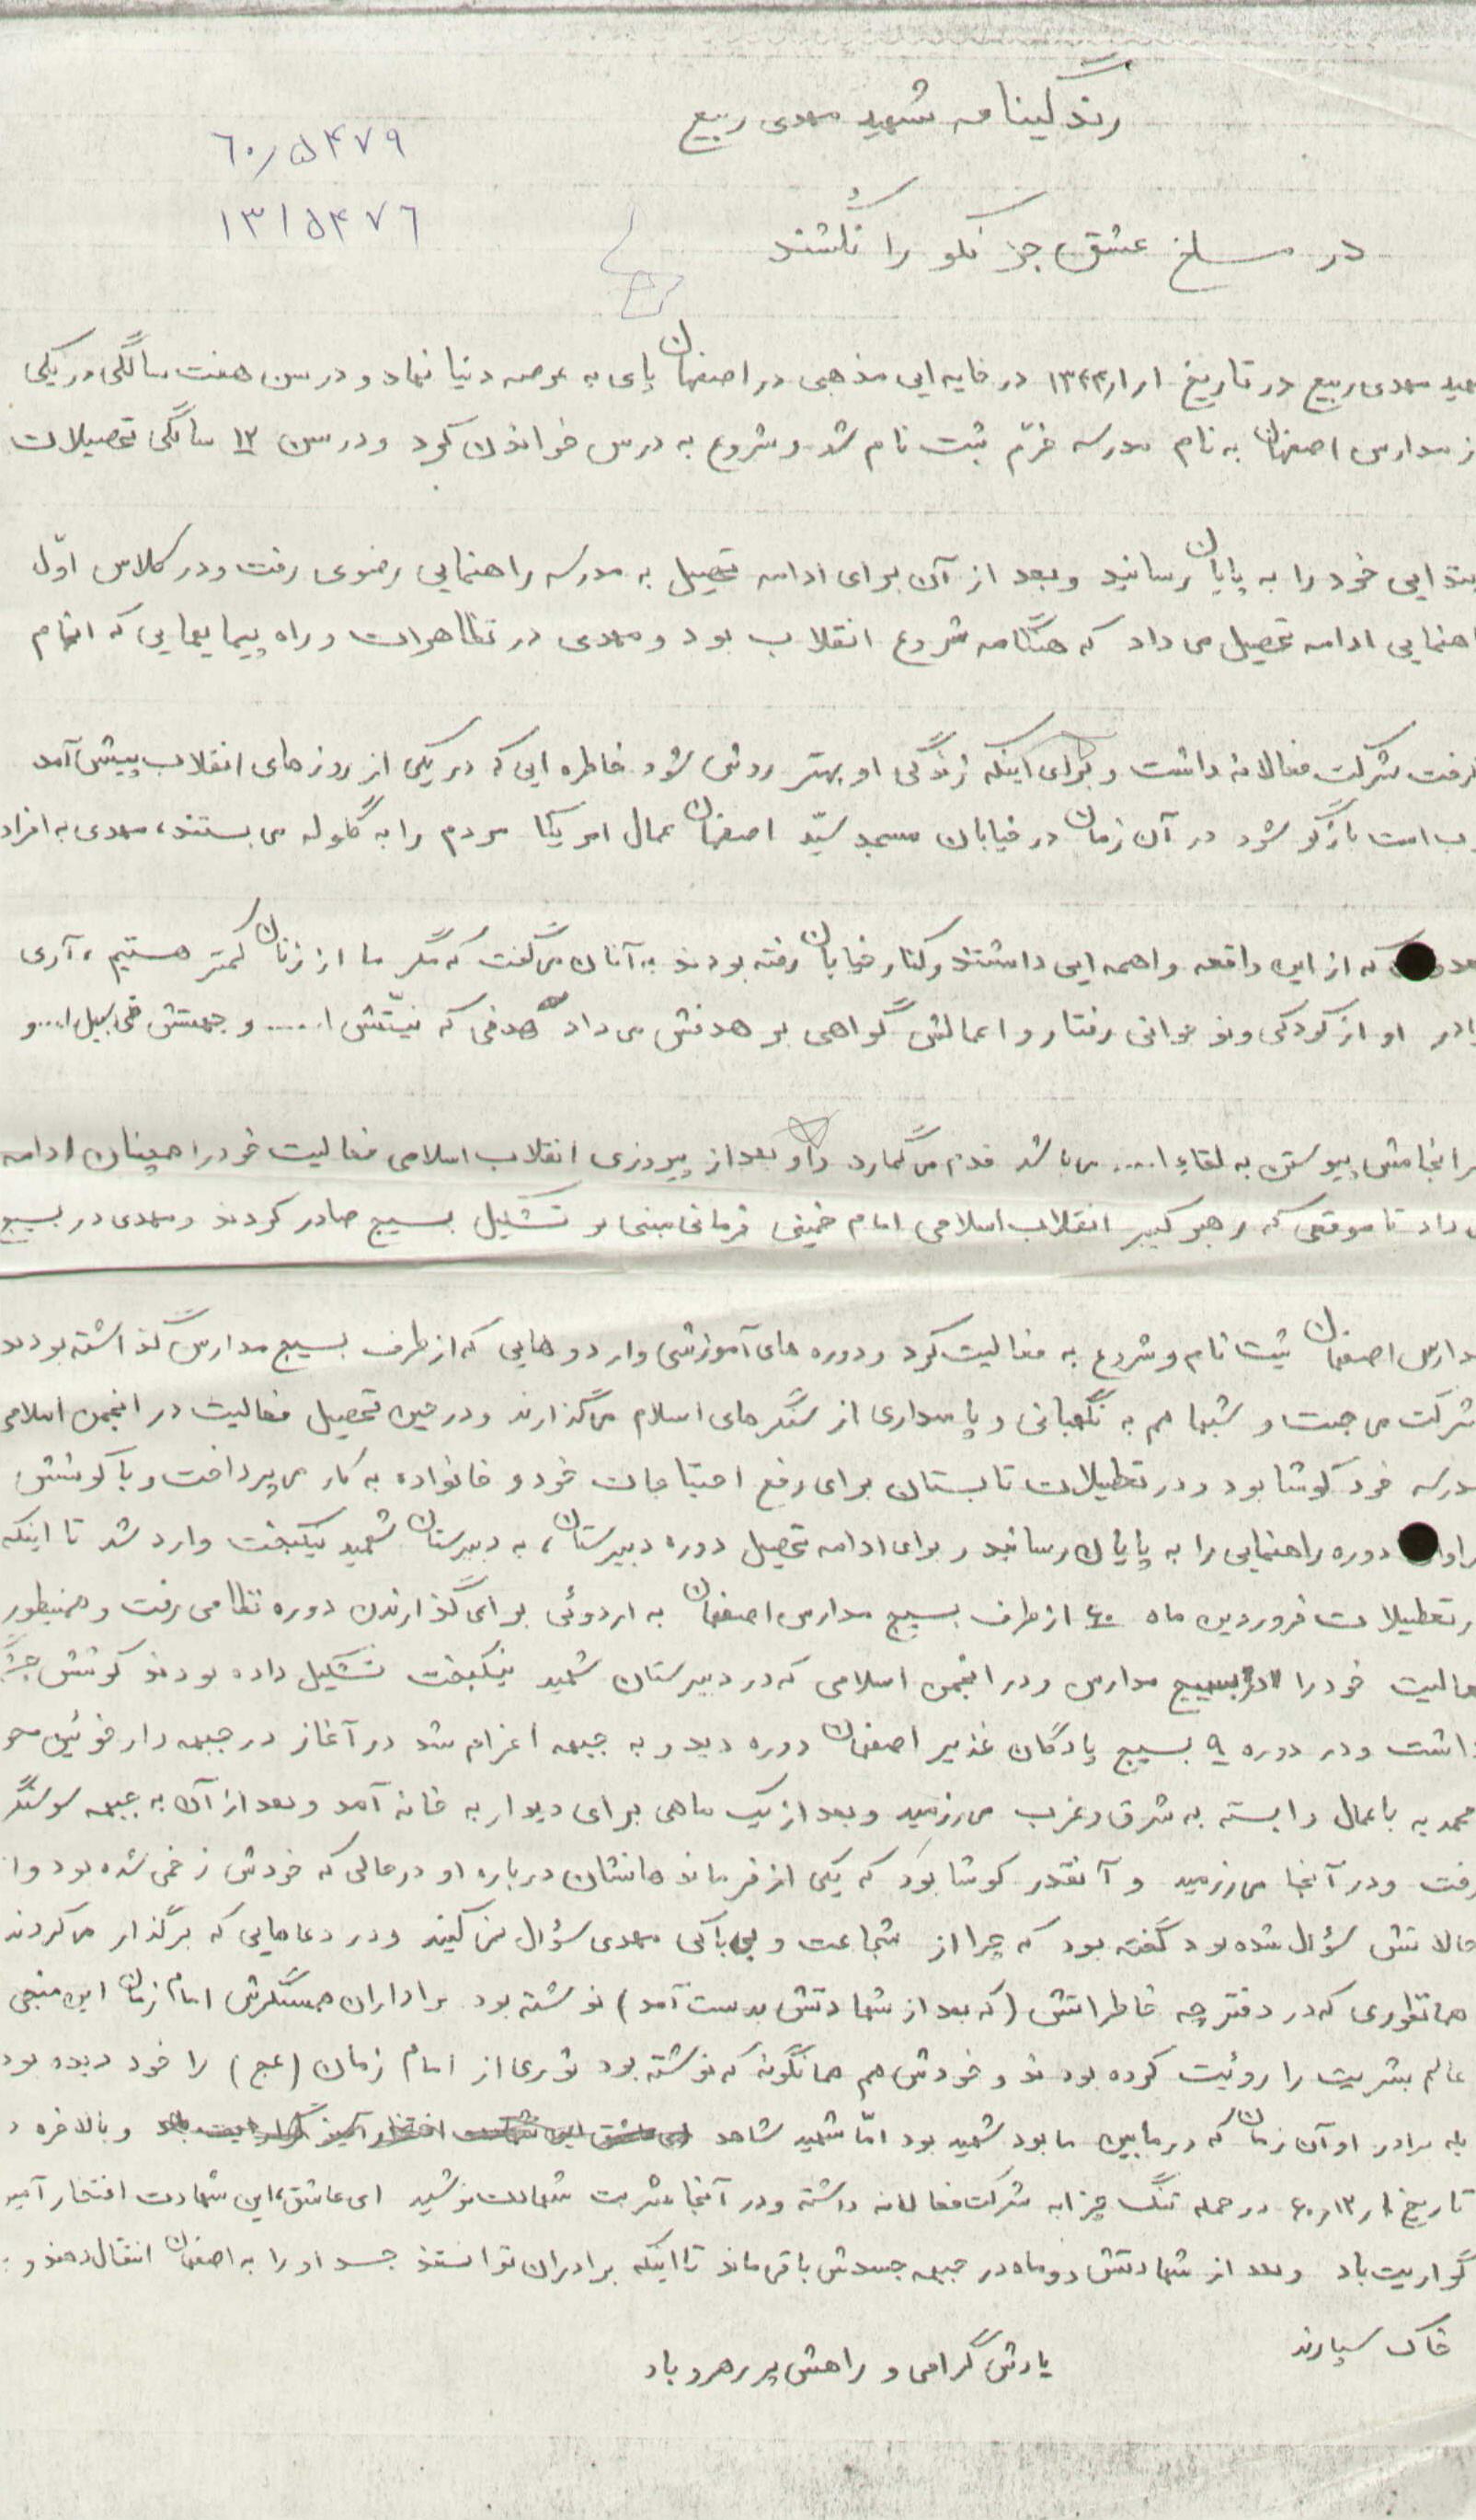 زندگینامه شهید مهدی ربیع
۶۰/۵۴۷۹
۱۳۱۵۴۷۶
در مسلخ عشق جز نکو را نکشند
مهدی ربیع در تاریخ ۱۳۴۴/۱/۱ در خانه ایی مذهبی در اصفهان پای به عرصه دنیا نهاد و در سن هفت سالگی در یکی
از مدارس اصفهان به نام مدرسه خرّم ثبت نام شد و شروع به درس خواندن کرد و در سن ۱۲ سالگی تحصیلات
ابتدایی خود را به پایان رسانید و بعد از آن برای ادامه تحصیل به مدرسه راهنمایی رضوی رفت و در کلاس اوّل
راهنمایی ادامه تحصیل می داد که هنگامه شروع انقلاب بود و مهدی در تظاهرات و راه پیمایهایی که انجام
گرفت شرکت فعالانه داشت و برای اینکه زندگی او بهتر روشن شود خاطره ایی که در یکی از روزهای انقلاب پیش آمد
است بازگو شود در آن زمان در خیابان مسجد سیّد اصفهان عمال امریکا مردم را به گلوله می بستند، مهدی به افراد
که از این واقعه واهمه ایی داشتند و کنار خیابان رفته بودند به آنان می گفت که مگر ما از زنان کمتر هستیم، آری
او از کودکی و نوجوانی رفتار و اعمالش گواهی بر هدفش می داد هدفی که نیّتش ا..... و جهتش فی سبیل ا.... و
سرانجامش پیوستن به لقاء ا.... می باشد قدم می گمارد و او بعد از پیروزی انقلاب اسلامی فعالیت خود را همچنان ادامه
می داد تا موقعی که رهبر کبیر انقلاب اسلامی امام خمینی فرمانی مبنی بر تشکیل بسیج صادر کردند و مهدی در بسیج
مدارس اصفهان ثبت نام و شروع به فعالیت کرد و دوره های آموزشی و اردوهایی که از طرف بسیج مدارس گذاشته بودند
شرکت می جست و شبها هم به نگهبانی و پاسداری از سنگرهای اسلام می گذارند و در حین تحصیل فعالیت در انجمن اسلامی
مدرسه خود کوشا بود و در تعطیلات تابستان برای رفع احتیاجات خود و خانواده به کار می پرداخت و با کوشش
دوره راهنمایی را به پایان رسانید و برای ادامه تحصیل دوره دبیرستان، به دبیرستان شهید نیکبخت وارد شد تا اینکه
در تعطیلات فروردین ماه ۶۰ از طرف بسیج مدارس اصفهان به اردوئی برای گذارندن دوره نظامی رفت و همنیطور
فعالیت خود را در بسیج مدارس و در انجمن اسلامی که در دبیرستان شهید نیکبخت تشکیل داده بودند کوشش
داشت و در دوره ۹ بسیج پادگان غدیر اصفهان دوره دید و به جبهه اعزام شد در آغاز در جبهه دارخوئین
محمدیه با عمال وابسته به شرق و غرب می رزمید و بعد از یک ماهی برای دیدار به خانه آمد و بعد از آن به جبهه سوسنگرد
رفت و در آنجا می رزمید و آنقدر کوشا بود که یکی از فرماندهانشان درباره او در حالی که خودش زخمی شده بود و از
حالاتش سؤال شده بود گفته بود که چرا از شجاعت و بی باکی مهدی سؤال نمی کیند و در دعاهایی که برگذار می کردند
همانطوری که در دفترچه خاطراتش (که بعد از شهادتش بدست آمد) نوشته بود براداران همسنگرش امام زمان این منجی
عالم بشریت را روئیت کرده بودند و خودش هم همانگونه که نوشته بود نوری از امام زمان (عج) را خود دیده بود
بله برادر او آن زمان که در مابین ما بود شهید بود امّا شهید شاهد و بالاخره د
تاریخ در حمله تنگ چزابه شرکت فعالانه داشته و در آنجا شربت شهادت نوشید ای عاشق، این شهادت افتخار آمیز
گوارییت باد و بعد از شهادتش دو ماه در جبهه جسدش باقی ماند تا اینکه برادران توانستند جسد او را به اصفهان انتقال دهند و به
خاک سپارند
یادش گرامی و راهش پر رهرو باد